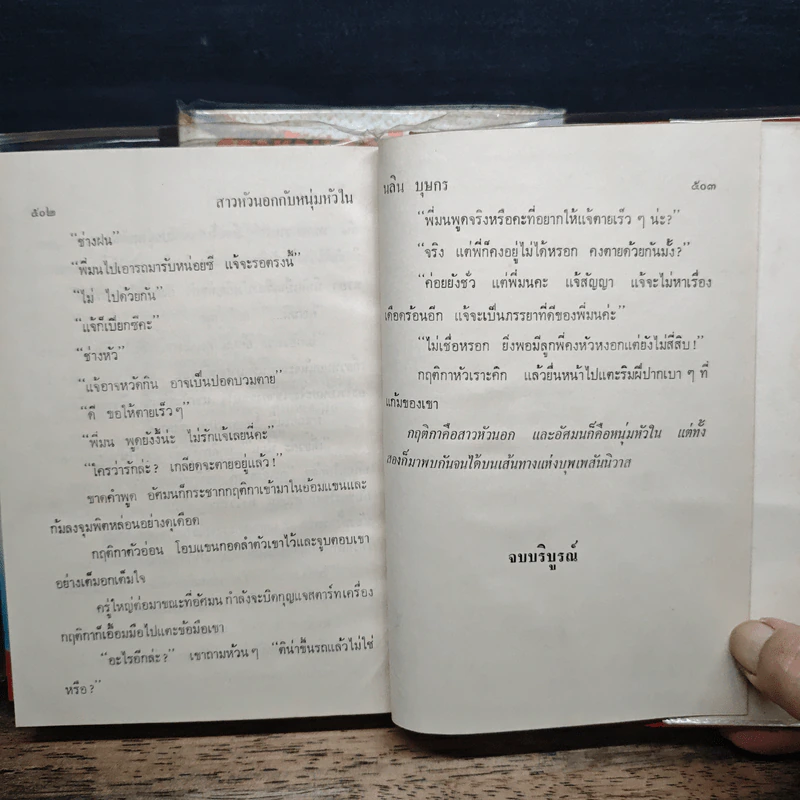 ๕๐๒
สาวหัวนอกกับหนุ่มหัวใน
“ช่างฝน”
“พี่มนไปเอารถมารับหน่อยซี แจ้จะรอตรงนี้”
“ไม่ ไปด้วยกัน”
“แจ้ก็เปียกซีคะ”
“ช่างหัว”
“แจ้อาจหวัดกิน อาจเป็นปอดบวมตาย”
“ดี ขอให้ตายเร็วๆ”
“พี่มน พูดยังงี้น่ะ ไม่รักแจ้เลยนี่คะ”
“ใครว่ารักล่ะ? เกลียดจะตายอยู่แล้ว!”
ขาดคำพูด อัศมนก็กระชากกฤติกาเข้ามาในอ้อมแขนและ
ก้มลงจุมพิตหล่อนอย่างดุเดือด
กฤติกาตัวอ่อน โอบแขนกอดลำตัวเขาไว้และจูบตอบเขา
อย่างเต็มอกเต็มใจ
ครู่ใหญ่ต่อมาขณะที่อัศมน กำลังจะบิดกุญแจสตาร์ทเครื่อง
กฤติกาก็เอื้อมมือไปแตะข้อมือเขา
“อะไรอีกล่ะ?” เขาถามห้วนๆ “ดิน่าขึ้นรถแล้วไม่ใช่
หรือ?”
นลิน บุษกร
๕๐๓
“พี่มนพูดจริงหรือคะที่อยากให้แจ้ตายเร็ว ๆ น่ะ?”
“จริง แต่พี่ก็คงอยู่ไม่ได้หรอก คงตายด้วยกันมั้ง?”
“ค่อยยังชั่ว แต่พี่มนคะ แจ้สัญญา แจ้จะไม่หาเรื่อง
เดือดร้อนอีก แจ้จะเป็นภรรยาที่ดีของพี่มนค่ะ”
“ไม่เชื่อหรอก ยิ่งพอมีลูกพี่คงหัวหงอกแต่ยังไม่สี่สิบ!”
กฤติกาหัวเราะคิก แล้วยื่นหน้าไปแตะริมฝีปากเบา ๆ ที่
แก้มของเขา
กฤติกาคือสาวหัวนอก และอัศมนก็คือหนุ่มหัวใน แต่ทั้ง
สองก็มาพบกันจนได้บนเส้นทางแห่งบุพเพสันนิวาส
จบบริบูรณ์